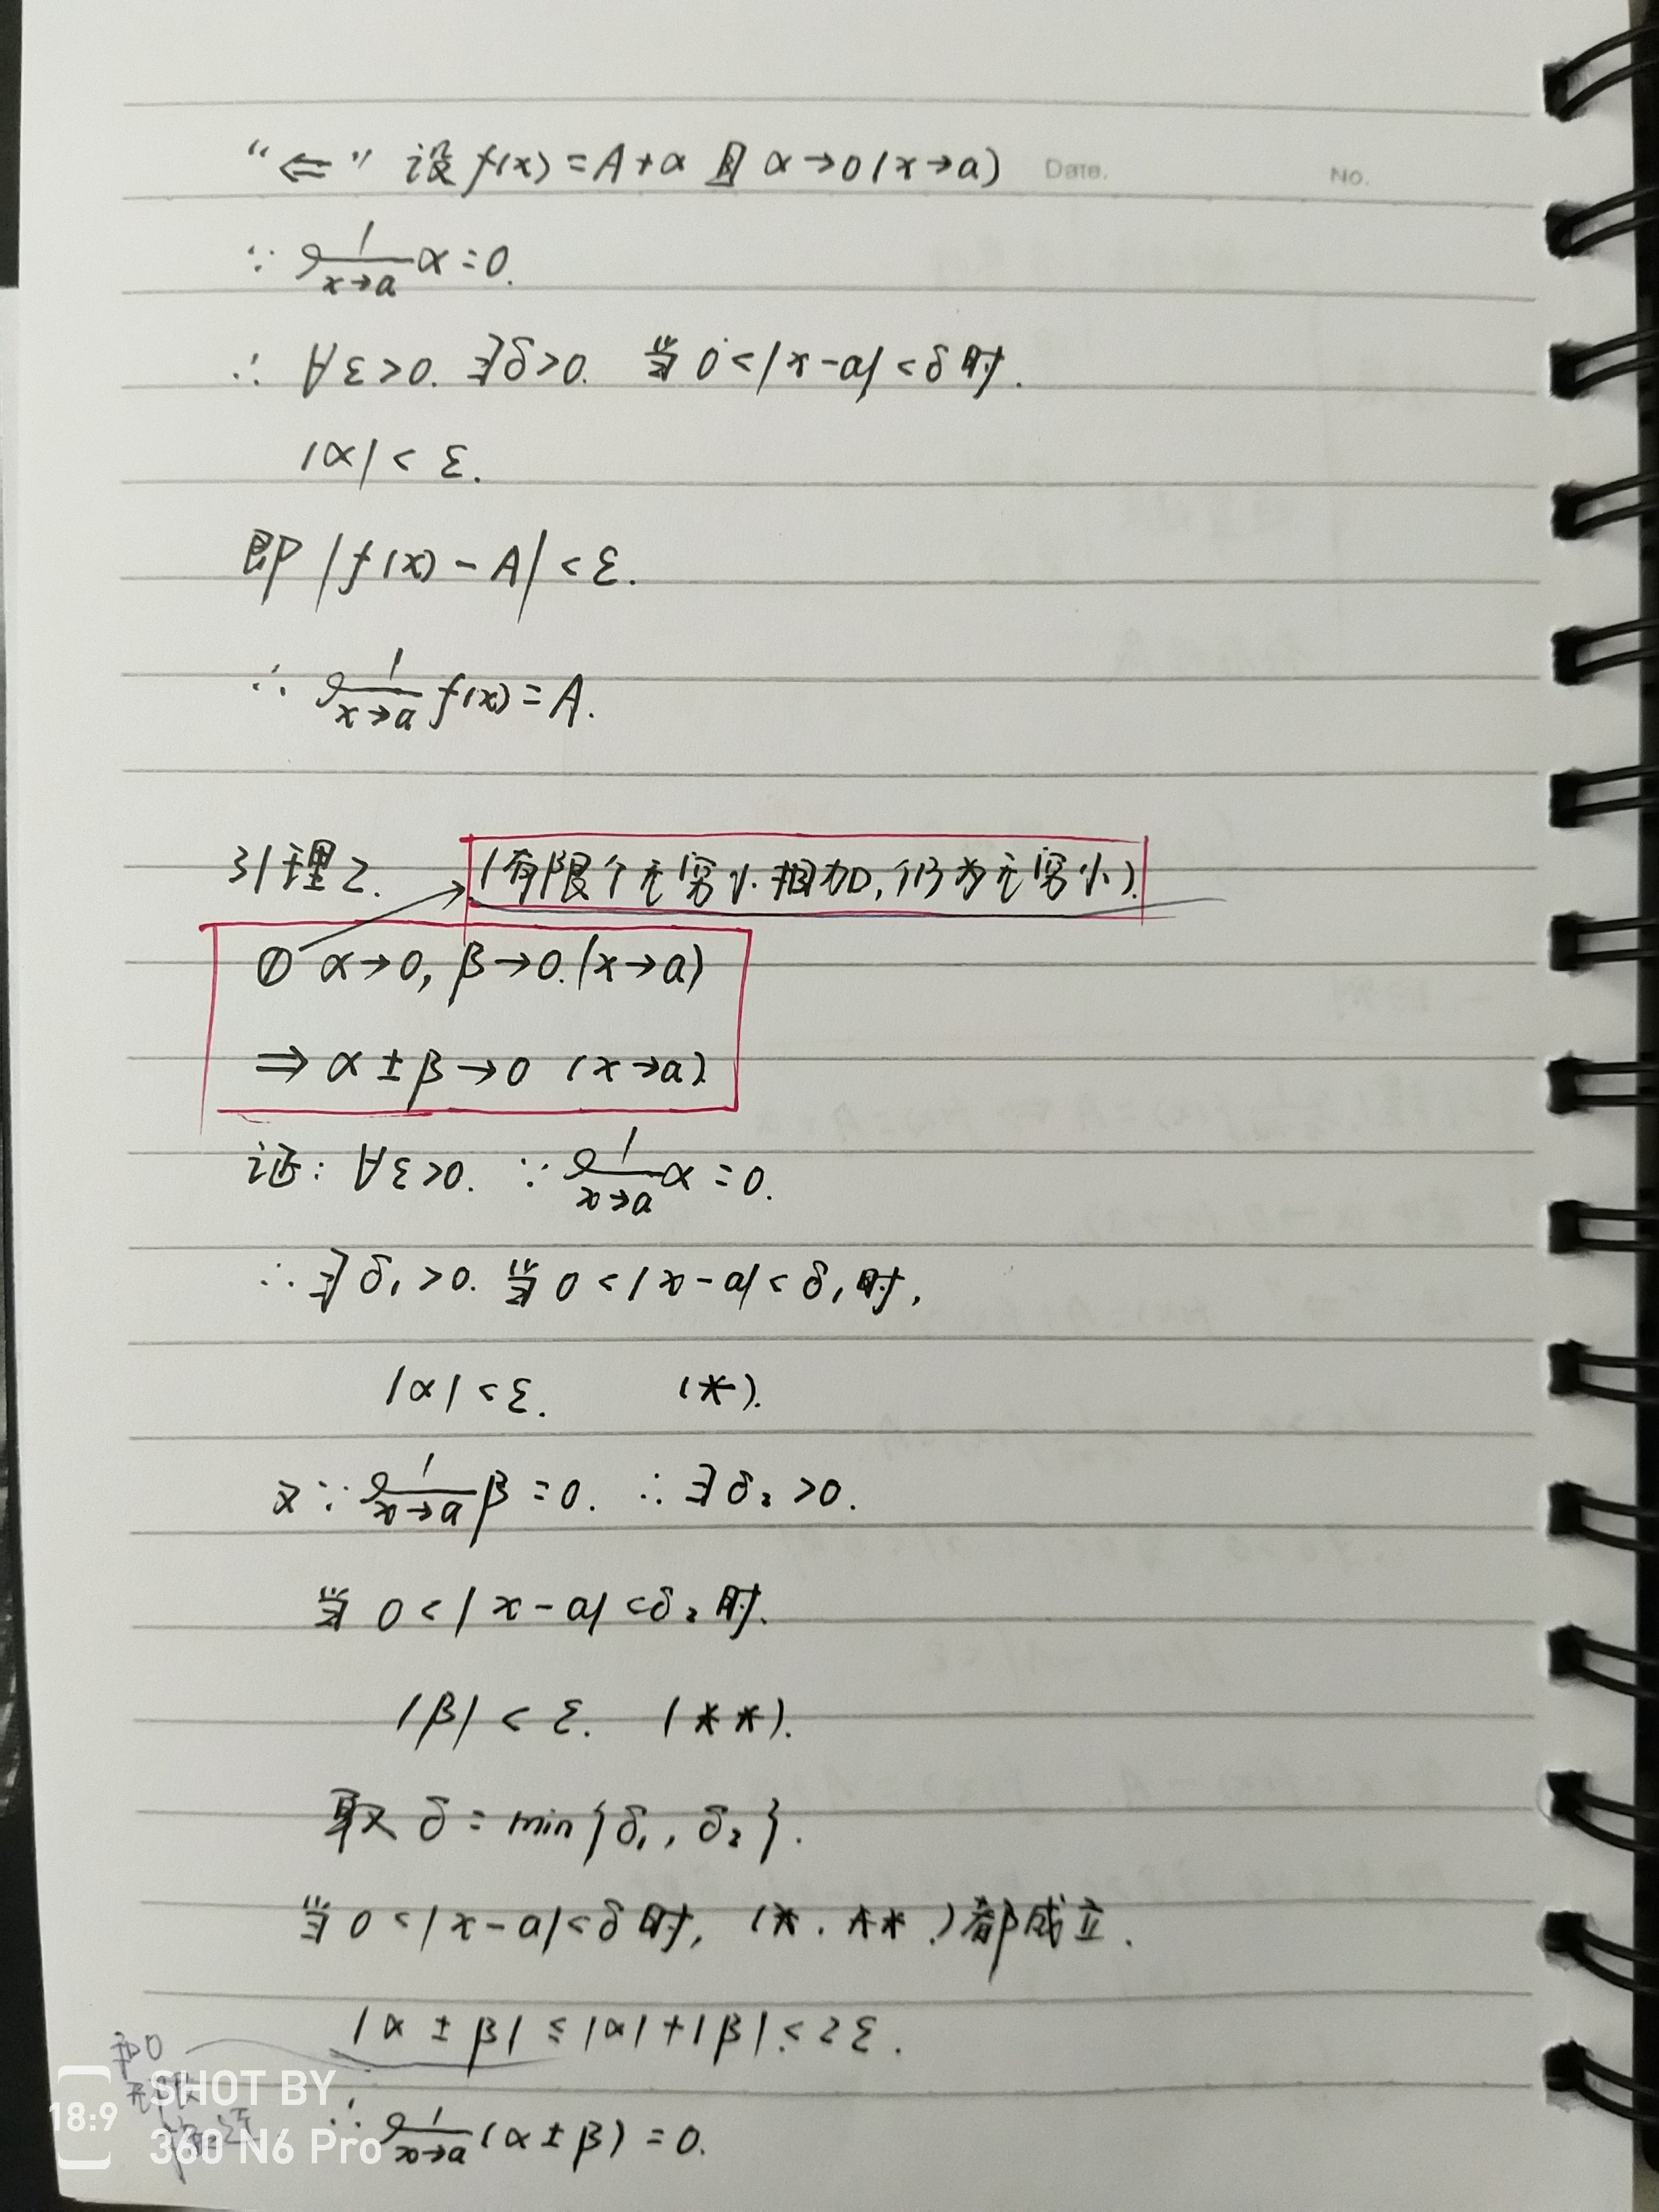 Date.
No.
"⇐" 设 f(x)=A+α 且 α→0(x→a)
∵ lim x→a α=0.
∴ ∀ε>0. ∃δ>0. 当 0<|x-a|<δ时.
|α|<ε.
即 |f(x)-A|<ε.
∴ lim x→a f(x)=A.
引理2. (有限个无穷小相加,仍为无穷小).
① α→0, β→0.(x→a)
⇒ α±β→0 (x→a)
证: ∀ε>0. ∵ lim x→a α=0.
∴ ∃δ₁>0. 当 0<|x-a|<δ₁时,
|α|<ε. (*).
又∵ lim x→a β=0. ∴ ∃δ₂>0.
当 0<|x-a|<δ₂时.
|β|<ε. (**).
取 δ=min{δ₁, δ₂}.
当 0<|x-a|<δ时, (*. **.)都成立.
|α±β|≤|α|+|β|<2ε.
和0
∴ lim x→a (α±β)=0.
18:9
SHOT BY
360 N6 Pro